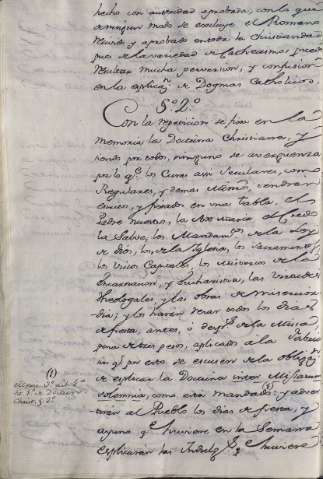 hecho con autoridad aprobada, con la qual
à ningun modo se excluye el Romano
Menor, y aprobado en toda la Christiandad
pues de la variedad de Cathecismos puede
resultar mucha perversion, y confusion
en la aplicⁿ. de Dogmas Catholicos.
§º. 2º.
Con la repeticion se fixa en la
memoria la Doctrina Christiana, y
siendo por todos, ninguno se averguenza
por lo q.ᵉ los Curas assi Seculares, como
Regulares, y demas tendran
escrito, y fixado en una tabla. el
Padre nuestro, la Ave Maria, el Credo
la Salve, los Mandam.ᵗᵒˢ de la Ley
de Dios, los de la Iglesia, los Sacramentos,
los Vicios Capitales, los Misterios de la
Encarnacion, y Eucharistia, las Virtudes
Theologales, y las obras de misericor-
dia; y las haràn rezar todos los dias
de fiesta, antes, ò desp.ˢ de la Missa,
pena de tres pesos, aplicados a la
sin q.ᵉ por esto se escusen de la oblig.ⁿ
de explicar la Doctrina inter Missarum
solemnia, como està mandado; (1) y adver-
tiràn al Pueblo los dias de fiesta, y
ayuno q.ᵉ huviere en la Semana
explicaran las Indulg.ˢ q.ᵉ huviere
(1)